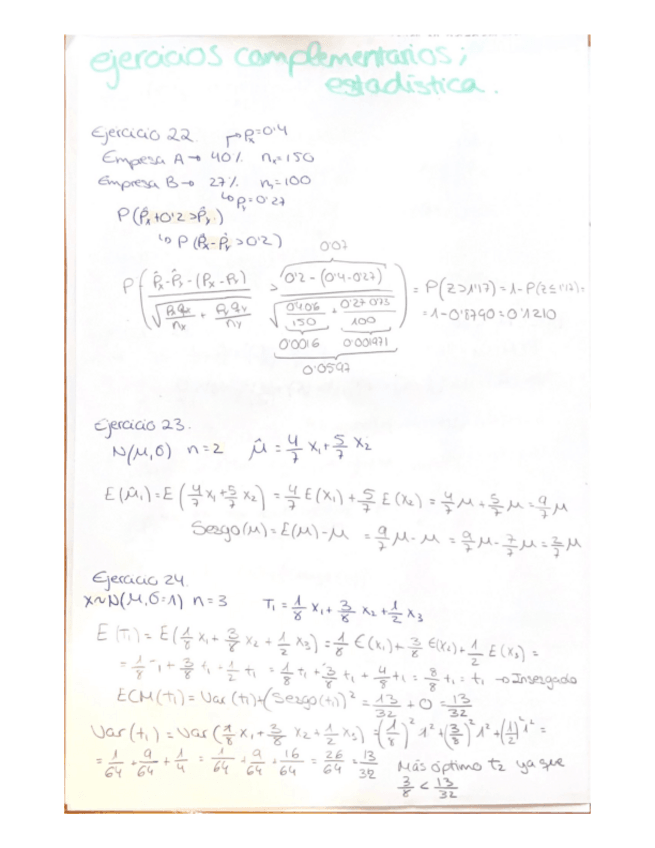 ejercicios complementarios;
estadística.
Ejercicio 22. ↱Pₓ=0'4
Empresa A → 40% nₓ=150
Empresa B → 27% nᵧ=100
↳Pᵧ=0'27
P(P̂ₓ+0'2>P̂ᵧ)
↳ P(P̂ₓ-P̂ᵧ>0'2)
0'07
P( (P̂ₓ-P̂ᵧ-(Pₓ-Pᵧ)) / √(Pₓqₓ/nₓ + Pᵧqᵧ/nᵧ) > (0'2-(0'4-0'27)) / √(0'4·0'6/150 + 0'27·0'73/100) ) = P(Z>1'17)=1-P(Z≤1'17)=
=1-0'8790=0'1210
0'0016 0'001971
0'0597
Ejercicio 23.
N(μ,σ) n=2 μ̂ = 4/7 x₁+5/7 x₂
E(μ̂₁)=E(4/7 x₁+5/7 x₂)=4/7 E(x₁)+5/7 E(x₂)=4/7 μ+5/7 μ=9/7 μ
Sesgo(μ)=E(μ)-μ =9/7 μ-μ =9/7 μ-7/7 μ=2/7 μ
Ejercicio 24.
x~N(μ,σ=1) n=3 T₁=1/8 x₁+3/8 x₂+1/2 x₃
E(T₁)=E(1/8 x₁+3/8 x₂+1/2 x₃)=1/8 E(x₁)+3/8 E(x₂)+1/2 E(x₃)=
=1/8 t₁+3/8 t₁+1/2 t₁=1/8 t₁+3/8 t₁+4/8 t₁=8/8 t₁=t₁ → Insesgado
ECM(t₁)=Var(t₁)+(Sesgo(t₁))²=13/32+0=13/32
Var(t₁)=Var(1/8 x₁+3/8 x₂+1/2 x₃)=(1/8)²1²+(3/8)²1²+(1/2)²1²=
=1/64+9/64+1/4=1/64+9/64+16/64=26/64=13/32 Más óptimo t₂ ya que
3/8<13/32